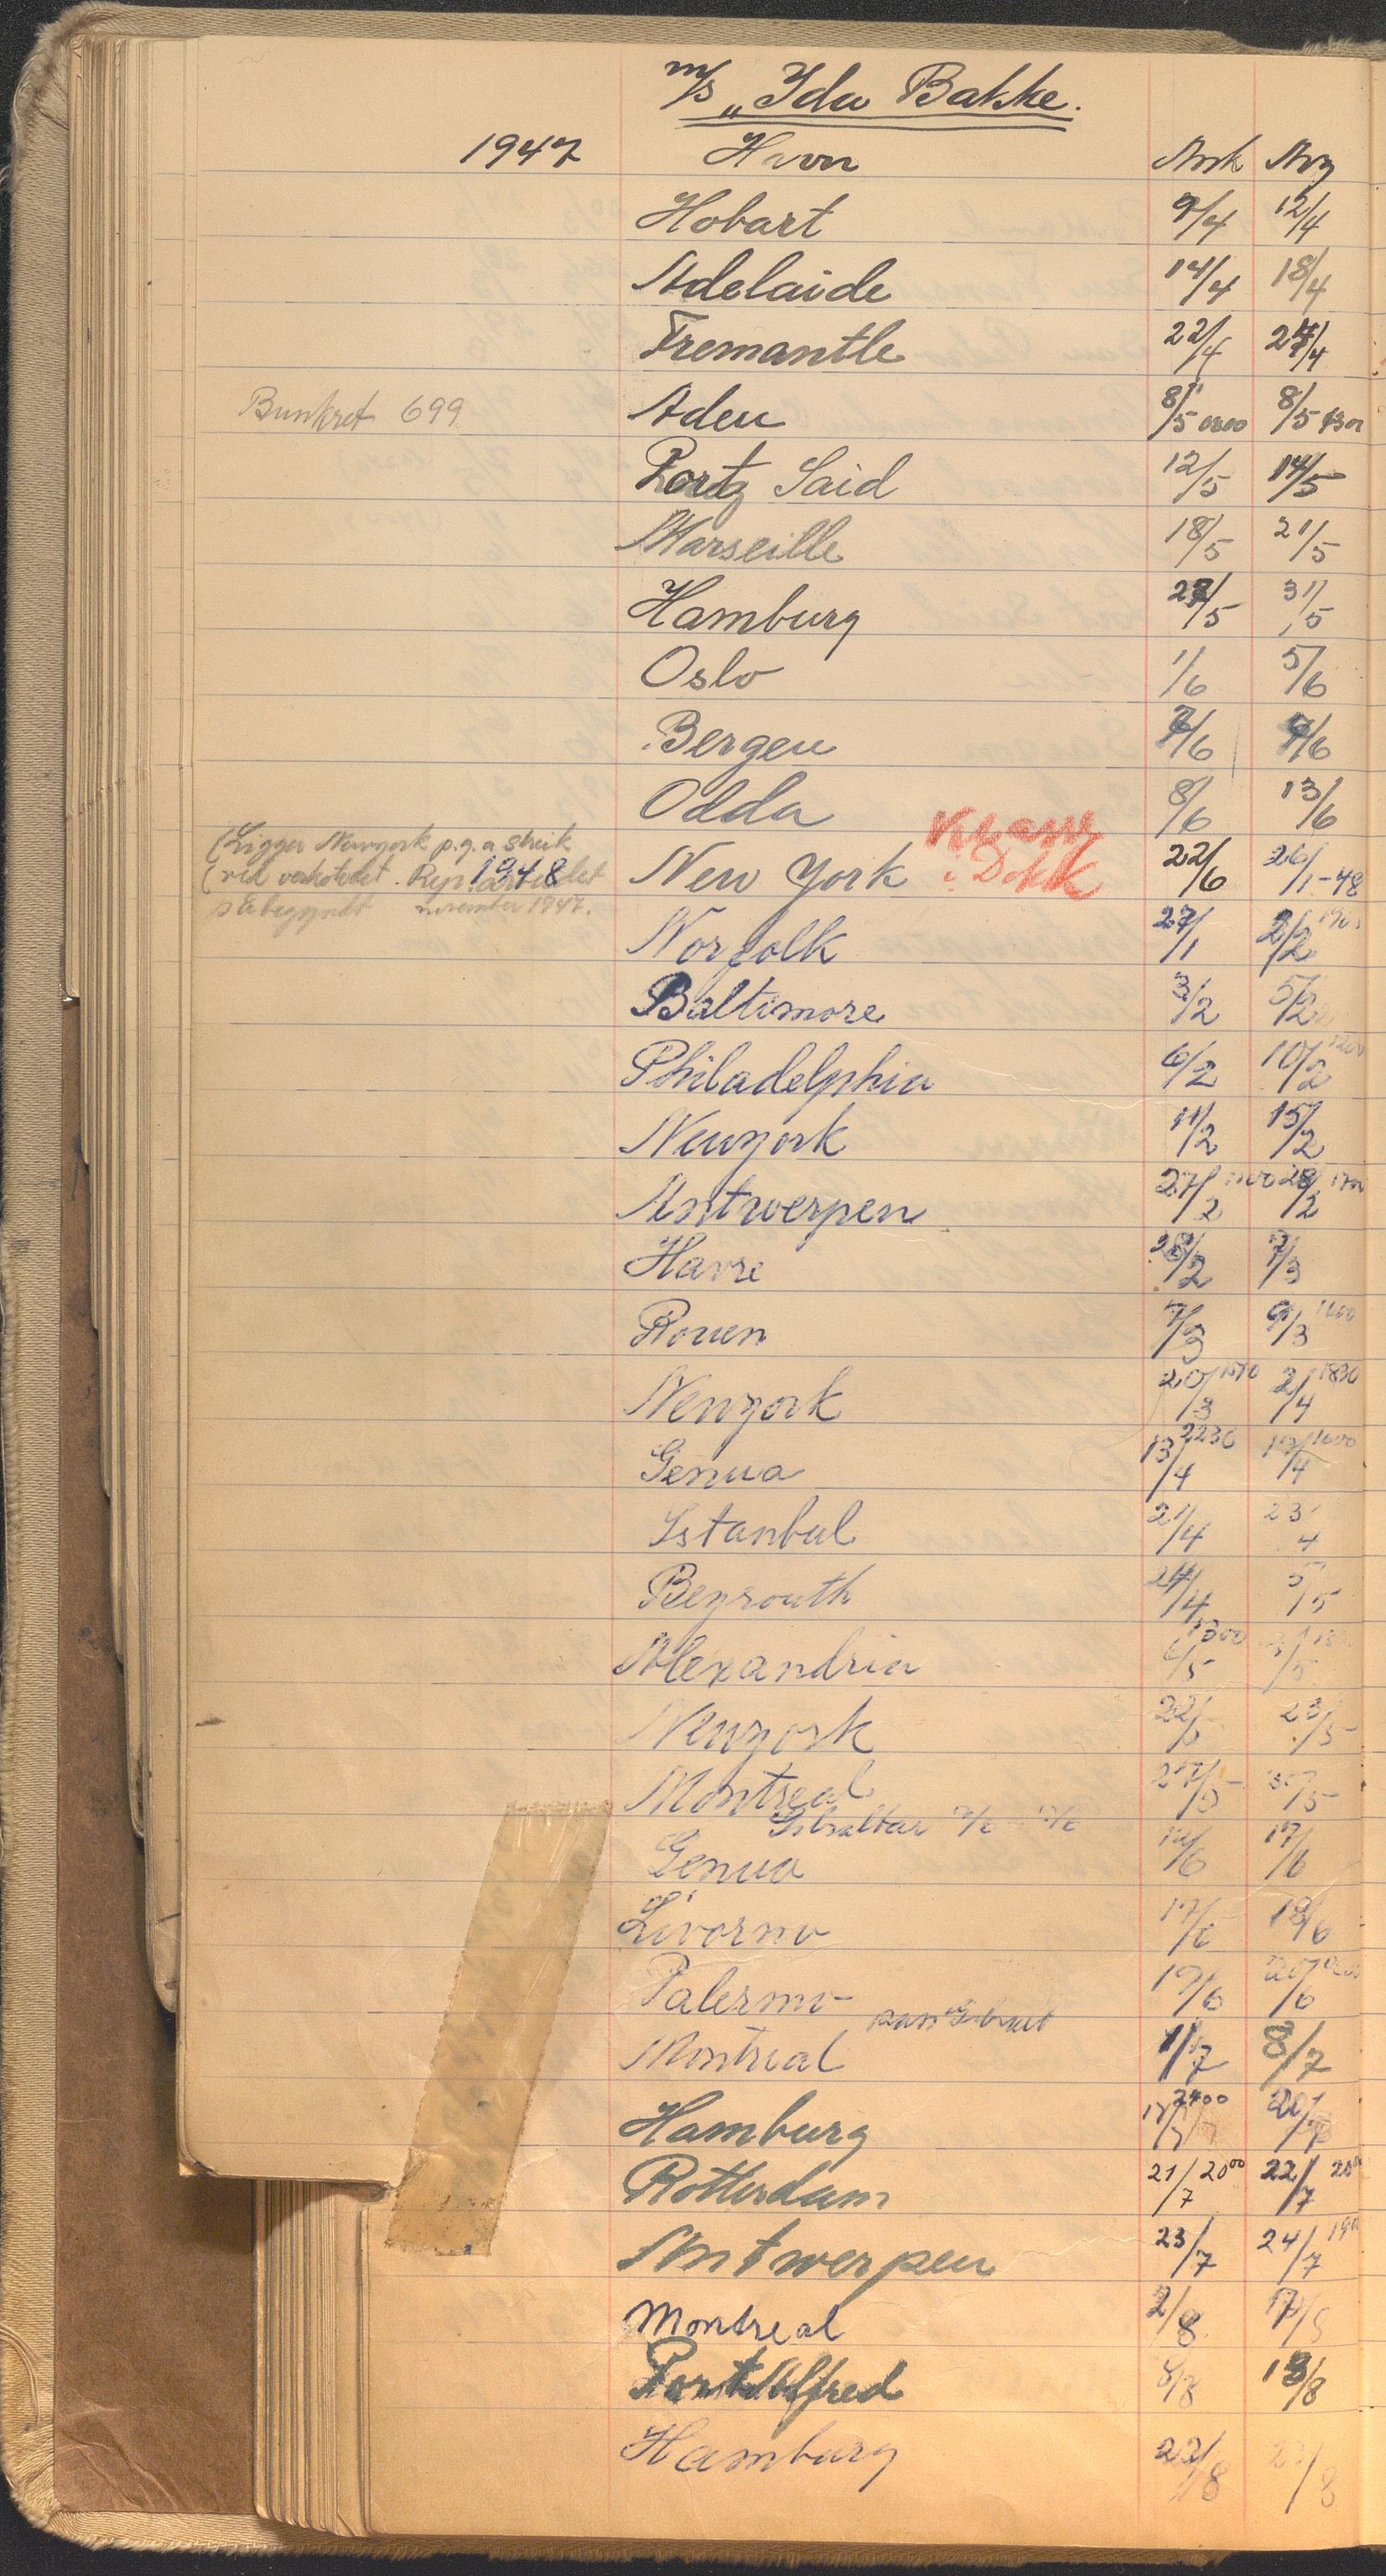 m/s „Ida Bakke.
1947 Havn Ank Avg
Hobart 9/4 12/4
Adelaide 14/4 18/4
Fremantle 22/4 24/4
Bunkret 699 Aden 8/5 0800 8/5
Port Said 12/5 14/5
Marseille 18/5 21/5
Hamburg 27/5 31/5
Oslo 1/6 5/6
Bergen /6 /6
Odda 8/6 13/6
(Ligger Newyork p.g.a streik
Klasse
(ved verkstedet. 1948 New York i Dokk 22/6 26/1-48
påbegyndt november 1947.
Norfolk 27/1 2/2
Baltimore 3/2 5/2
Philadelphia 6/2 10/2
Newyork 11/2 15/2
Antwerpen 27/2 28/2
Havre 28/2 7/3
Rouen 7/3 9/3
Newyork 20/3 2/4 1830
Genua 13/4 2230 /4
Istanbul 21/4 23/4
Beyrouth 24/4 5/5
Alexandria 6/5 1300 /5
Newyork 22/5 23/5
Montreal 27/5 30/5
Gibraltar
Genua /6 17/6
Livorno 17/6 18/6
Palermo 19/6 20/6
pass
Montreal 1/7 8/7
Hamburg 2400 20/7
Rotterdam 21/7 20⁰⁰ 22/7
Antwerpen 23/7 24/7
Montreal 2/8
Port Alfred 8/8 13/8
Hamburg 22/8 /8